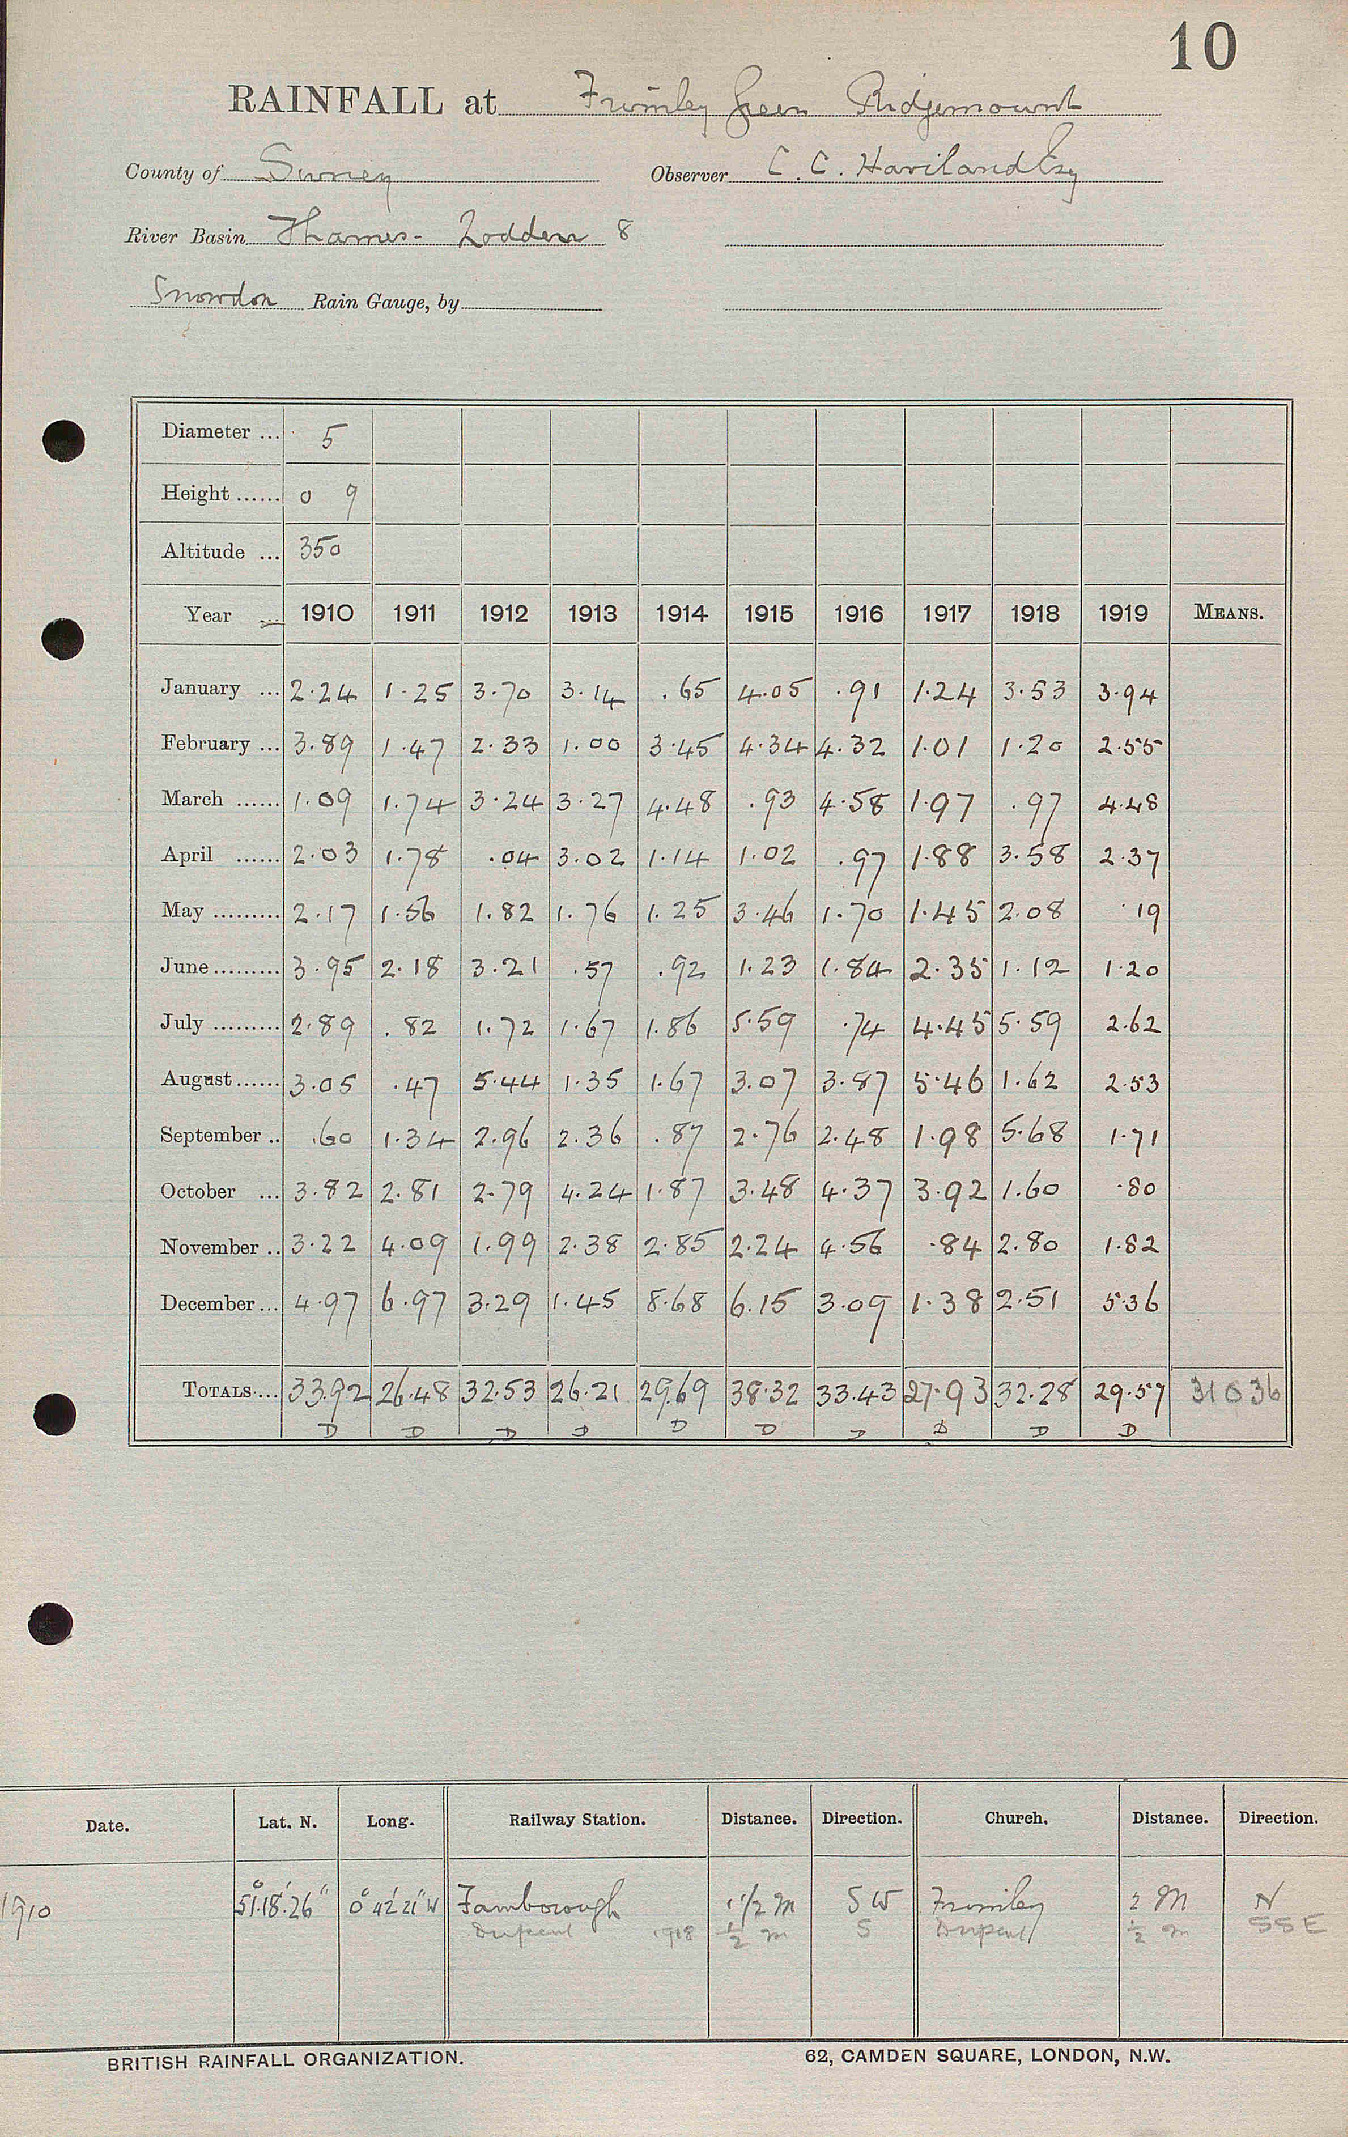 10
RAINFALL at Frimley Green Ridgemount
County of Surrey Observer C. C. Haviland Esq
River Basin Thames - Lodden 8
Snowdon Rain Gauge, by
Diameter ... 5
Height ...... 0 9
Altitude ... 350
Year ... 1910 1911 1912 1913 1914 1915 1916 1917 1918 1919 MEANS.
January ... 2.24 1.25 3.70 3.14 .65 4.05 .91 1.24 3.53 3.94
February ... 3.89 1.47 2.33 1.00 3.45 4.34 4.32 1.01 1.20 2.55
March ...... 1.09 1.74 3.24 3.27 4.48 .93 4.58 1.97 .97 4.48
April ...... 2.03 1.78 .04 3.02 1.14 1.02 .97 1.88 3.58 2.37
May ......... 2.17 1.56 1.82 1.76 1.25 3.46 1.70 1.45 2.08 .19
June ......... 3.95 2.18 3.21 .57 .92 1.23 1.84 2.35 1.12 1.20
July ......... 2.89 .82 1.72 1.67 1.86 5.59 .74 4.45 5.59 2.62
August ...... 3.05 .47 5.44 1.35 1.67 3.07 3.87 5.46 1.62 2.53
September .. .60 1.34 2.96 2.36 .87 2.76 2.48 1.98 5.68 1.71
October ... 3.82 2.81 2.79 4.24 1.87 3.48 4.37 3.92 1.60 .80
November .. 3.22 4.09 1.99 2.38 2.85 2.24 4.56 .84 2.80 1.82
December ... 4.97 6.97 3.29 1.45 8.68 6.15 3.09 1.38 2.51 5.36
TOTALS .... 33.92 26.48 32.53 26.21 29.69 38.32 33.43 27.93 32.28 29.57 31036
D D D D D D D D D D
Date. Lat. N. Long. Railway Station. Distance. Direction. Church. Distance. Direction.
1910 51°.18'.26" 0° 42' 21" W Farnborough 1 1/2 M SW Frimley 2 M N
1918 1/2 m S 1/2 m SSE
BRITISH RAINFALL ORGANIZATION. 62, CAMDEN SQUARE, LONDON, N.W.